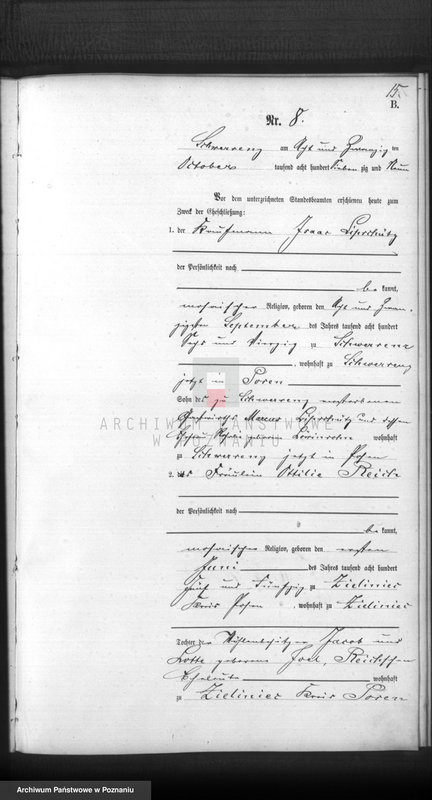 15.
B.
Nr. 8.
Schwersenz am Acht und Zwanzig ten
October tausend acht hundert sieben zig und Neun
Vor dem unterzeichneten Standesbeamten erschienen heute zum
Zweck der Eheschließung:
1. der Kaufmann Isaac Lipschitz
der Persönlichkeit nach
be kannt,
mosaischer Religion, geboren den Acht und Zwan-
zigsten September des Jahres tausend acht hundert
Sechs und Vierzig zu Schwersenz
, wohnhaft zu Schwersenz
jetzt in Posen
Sohn des zu Schwersenz verstorbenen
Marcus Lipschitz und dessen
Ehefrau geborene wohnhaft
zu Schwersenz jetzt in Posen
2. das Fräulein Ottilie Reich
der Persönlichkeit nach
be kannt,
mosaischer Religion, geboren den ersten
Juni des Jahres tausend acht hundert
fünf und Fünfzig zu Zieliniec
Kreis Posen , wohnhaft zu Zieliniec
Tochter der Mühlenbesitzer Jacob und
Lotte geborene Joel, Reichschen
Eheleute wohnhaft
zu Zieliniec Kreis Posen
ARCHIWUM PAŃSTWOWE
W POZNANIU
Archiwum Państwowe w Poznaniu